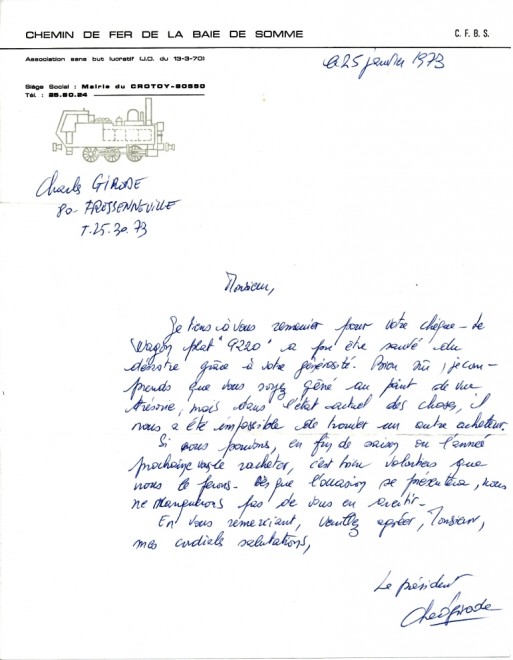 CHEMIN DE FER DE LA BAIE DE SOMME
C. F. B. S.
Association sans but lucratif (J.O. du 13-3-70)
le 25 janvier 1973
Siège Social : Mairie du CROTOY-80550
Tél. : 25.80.24
Charles GIRODE
80- FRESSENNEVILLE
T. 25.30.73
Monsieur,
Je tiens à vous remercier pour votre chèque - Le
Wagon plat "9220" a pu être sauvé du
désastre grâce à votre générosité. Bien sûr, je com-
prends que vous soyez gêné au point de vue
trésorie, mais dans l'état actuel des choses, il
nous a été impossible de trouver un autre acheteur.
Si nous pouvions, en fin de saison ou l'année
prochaine vous le racheter, c'est bien volontiers que
nous le ferons - Dès que l'occasion se présentera, nous
ne manquerons pas de vous en avertir -
En vous remerciant, veuillez agréer, Monsieur,
mes cordiales salutations,
Le président